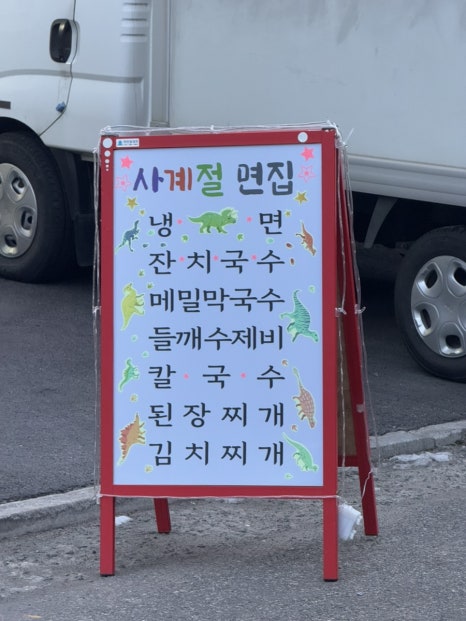 사계절 면집
냉·면
잔·치·국·수
메밀막국수
들깨수제비
칼·국·수
된장찌개
김치찌개